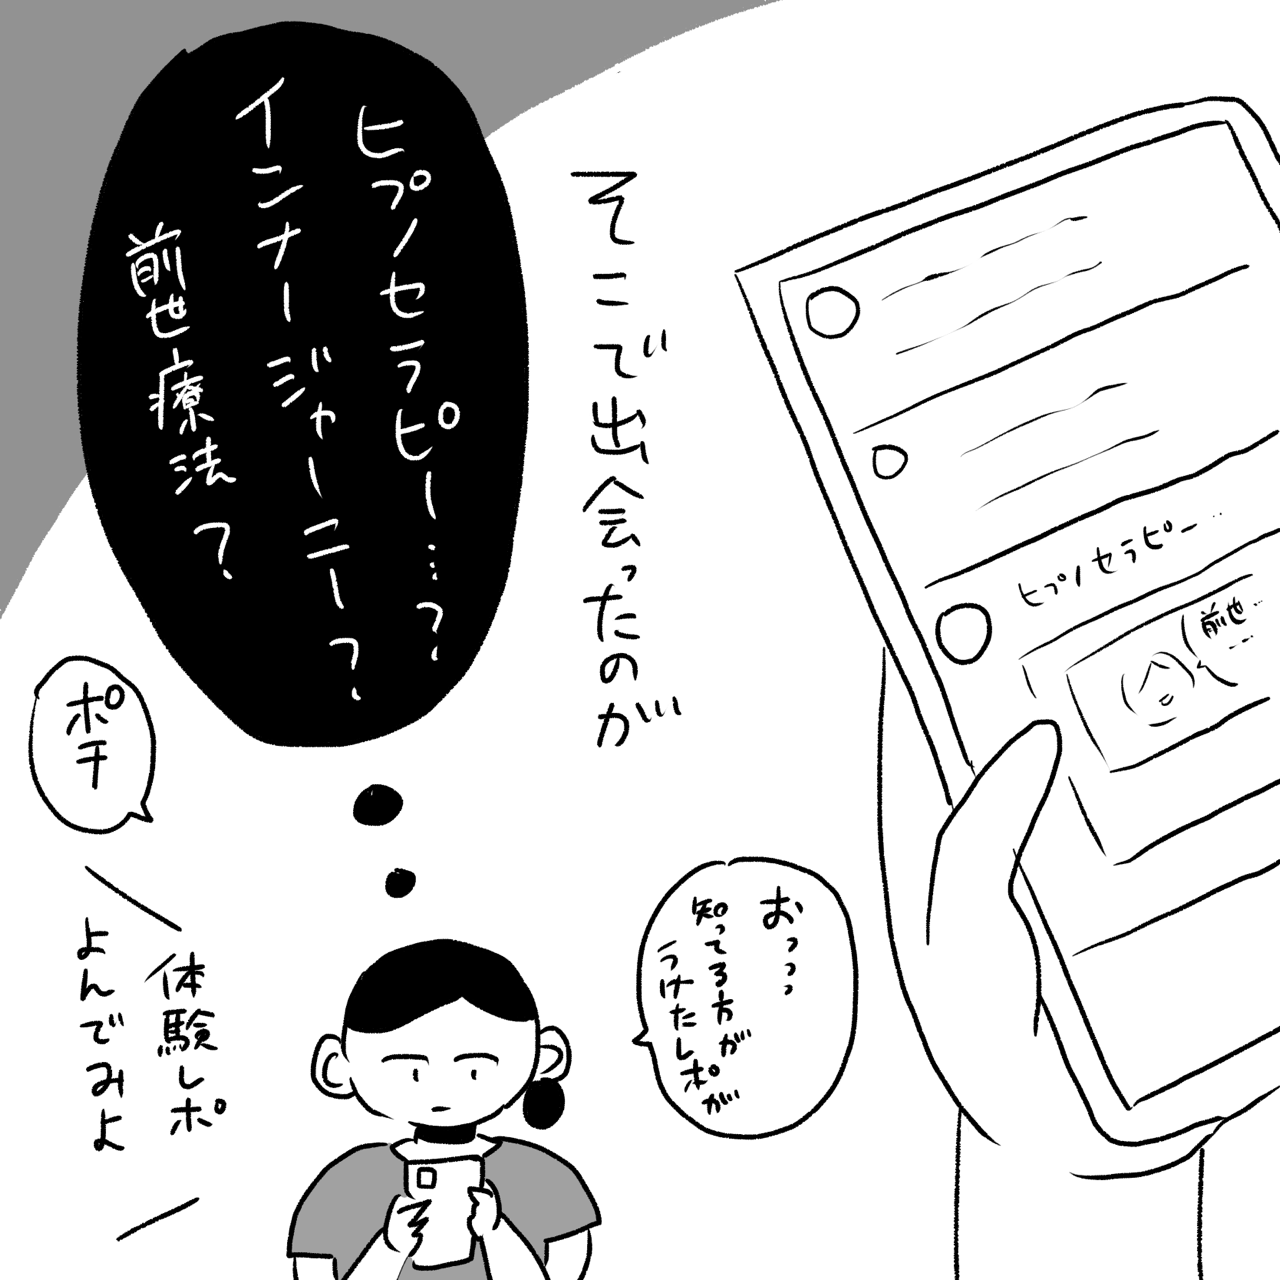 そこで出会ったのが
ヒプノセラピー…?
インナージャーニー?
前世療法?
ヒプノセラピー…
前世…
おっっっ
知ってる方が
うけたレポが
ポチ
体験レポ
よんでみよ